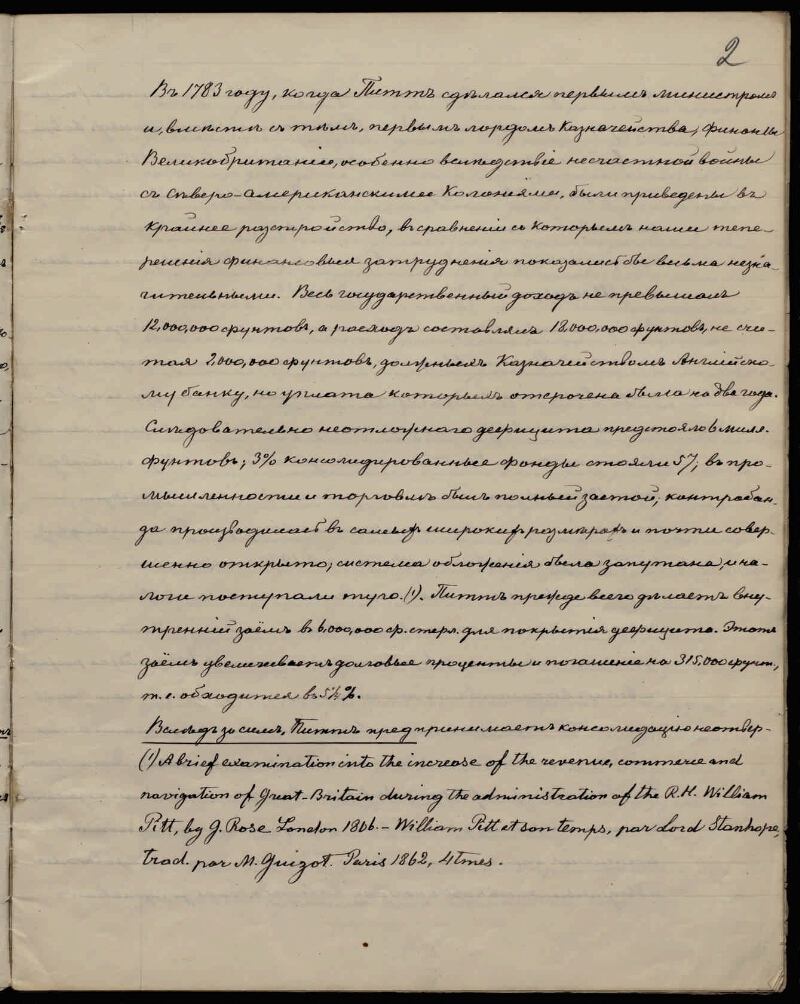 2
Въ 1783 году, когда Питтъ сдѣлался первымъ министромъ
и, вмѣстѣ съ тѣмъ, первымъ лордомъ Казначейства, финансы
Великобританіи, особенно вслѣдствіе несчастной войны
съ Сѣверо-Американскими Колоніями, были приведены въ
крайнее разстройство, въ сравненіи съ которымъ наши тепе-
решнія финансовыя затрудненія показались бы весьма незна-
чительными. Весь государственный доходъ не превышалъ
12,000,000 фунтовъ, а расходъ составлялъ 18,000,000 фунтовъ, не счи-
тая 2,000,000 фунтовъ, должныхъ Казначействомъ Англійско-
му банку, но уплата которыхъ отсрочена была на два года.
Слѣдовательно неотложнаго дефицита предстояло 6 милл.
фунтовъ; 3% консолидированные фонды стояли 57; въ про-
мышленности и торговлѣ былъ полный застой; контрабан-
да производилась въ самыхъ широкихъ размѣрахъ и почти совер-
шенно открыто; система обложенія была запутана, и на-
логи поступали туго. (1). Питтъ прежде всего дѣлаетъ вну-
тренній заёмъ въ 6,000,000 ф. стерл. для покрытія дефицита. Этотъ
заёмъ увеличиваетъ долговые проценты и погашеніе на 315,000 фунт.,
т. е. обходится въ 5¼%.
Вслѣдъ за симъ, Питтъ предпринимаетъ консолидацію неотвер-
(1) A brief examination into the increase of the revenue, commerce and
navigation of Great-Britain during the administration of the R.H. William
Pitt, by G. Rose London 1806. - William Pitt et son temps, par Lord Stanhope,
trad. par M. Guizot. Paris 1862, 4 tmes.